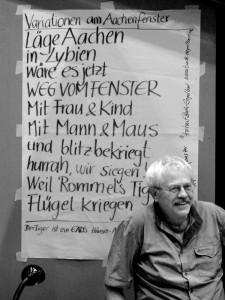 Variationen am Aachenfenster
Läge Aachen
in Lybien
wäre es jetzt
WEG VOM FENSTER
Mit Frau & Kind
Mit Mann & Maus
und blitzbekriegt
hurrah, wir siegen!
Weil Rommels Tig
Flügel kriegen
ist ein EADS